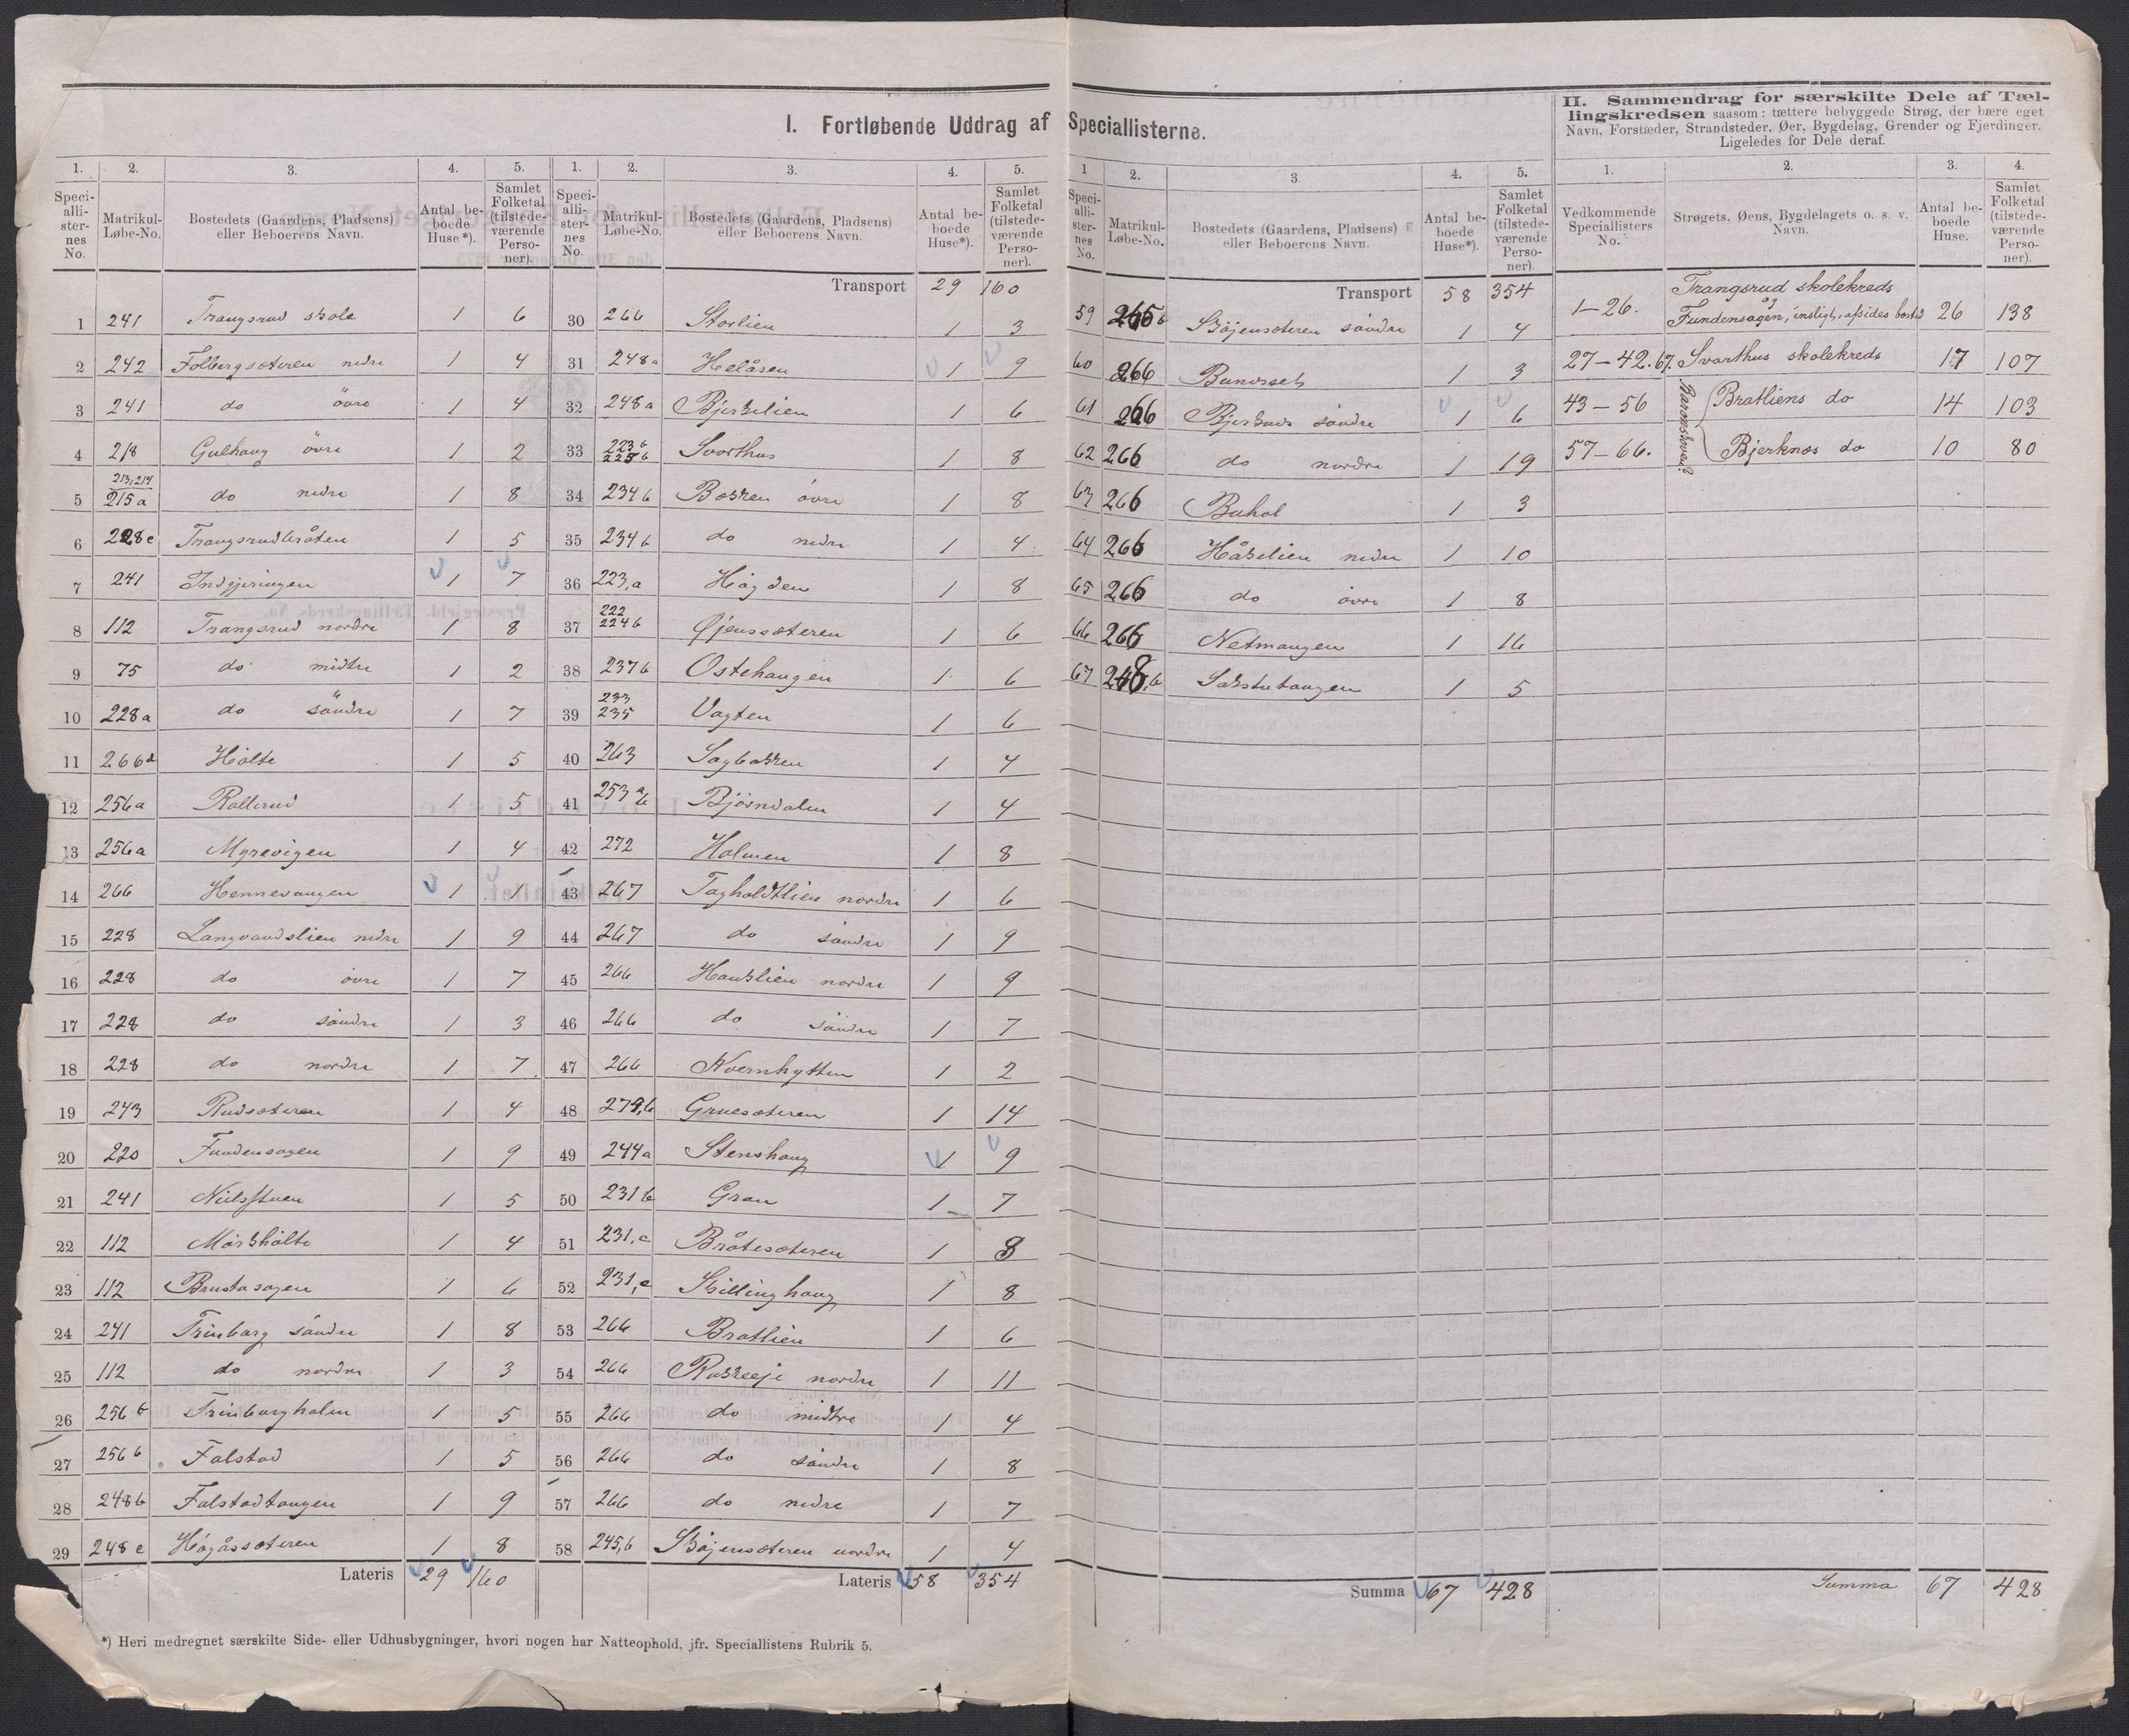 I. Fortløbende Uddrag af Speciallisterne.
1. 2. 3. 4. 5.
Speciallisternes No. Matrikul-Løbe-No. Bostedets (Gaardens, Pladsens) eller Beboerens Navn. Antal beboede Huse*). Samlet Folketal (tilstedeværende Personer).
1 241 Trangsrud skole 1 6
2 242 Folbergsæteren nedre 1 4
3 241 do övre 1 4
4 218 Gulhaug övre 1 2
5 213,214 215a do nedre 1 8
6 228c Trangsrudbråten 1 5
7 241 Indgjeringen 1 7
8 112 Trangsrud nordre 1 8
9 75 do midtre 1 2
10 228a do söndre 1 7
11 266d Holte 1 5
12 256a Rallerud 1 5
13 256a Myrevigen 1 4
14 266 Hennevangen 1 1
15 228 Langvandslien nedre 1 9
16 228 do övre 1 7
17 228 do söndre 1 3
18 228 do nordre 1 7
19 243 Rudsæteren 1 4
20 220 Fundensagen 1 9
21 241 Nielsstuen 1 5
22 112 Mörkholte 1 4
23 112 Brustasagen 1 6
24 241 Trinborg söndre 1 8
25 112 do nordre 1 3
26 256b Trinborgholm 1 5
27 256b Falstad 1 5
28 248b Falstadtangen 1 9
29 248c Högåssæteren 1 8
Lateris 29 160
1. 2. 3. 4. 5.
Speciallisternes No. Matrikul-Løbe-No. Bostedets (Gaardens, Pladsens) eller Beboerens Navn. Antal beboede Huse*). Samlet Folketal (tilstedeværende Personer).
Transport 29 160
30 266 Storlien 1 3
31 248a Helåsen 1 9
32 248a Bjerkelien 1 6
33 223b 225b Svarthus 1 8
34 234b Bakken övre 1 8
35 234b do nedre 1 4
36 223,a Högden 1 8
37 222 224b Øjenssæteren 1 6
38 237b Ostehaugen 1 6
39 233 235 Vagten 1 6
40 263 Sagbakken 1 4
41 253 a b Bjørndalen 1 4
42 272 Holmen 1 8
43 267 Tagholdtlien nordre 1 6
44 267 do söndre 1 9
45 266 Hauklien nordre 1 9
46 266 do söndre 1 7
47 266 Kvernhytten 1 2
48 279,b Gruesæteren 1 14
49 244a Stenshaug 1 9
50 231b Gran 1 7
51 231,c Bråtesæteren 1 8
52 231,e Killinghaug 1 8
53 266 Bratlien 1 6
54 266 Rokkeeje nordre 1 11
55 266 do midtre 1 4
56 266 do söndre 1 8
57 266 do nedre 1 7
58 245,b Böjensæteren nordre 1 4
Lateris 58 354
*) Heri medregnet særskilte Side- eller Udhusbygninger, hvori nogen har Natteophold, jfr. Speciallistens Rubrik 5.
1 2. 3. 4. 5.
Speciallisternes No. Matrikul-Løbe-No. Bostedets (Gaardens, Pladsens) eller Beboerens Navn. Antal beboede Huse*). Samlet Folketal (tilstedeværende Personer).
Transport 58 354
59 245b Böjensæteren söndre 1 4
60 266 1 3
61 266 söndre 1 6
62 266 do nordre 1 19
63 266 Buhol 1 3
64 266 Håkelien nedre 1 10
65 266 do övre 1 8
66 266 Netmangen 1 16
67 248,b Sakstutangen 1 5
Summa 67 428
II. Sammendrag for særskilte Dele af Tællingskredsen saasom: tættere bebyggede Strøg, der bære eget
Navn, Forstæder, Strandsteder, Øer, Bygdelag, Grender og Fjerdinger.
Ligeledes for Dele deraf.
1. 2. 3. 4.
Vedkommende Speciallisters No. Strøgets, Øens, Bygdelagets o. s. v. Navn. Antal beboede Huse. Samlet Folketal (tilstedeværende Personer).
Trangsrud skolekreds
1—26. og Fundensagen, enslig, afsides bosted 26 138
27—42. 67. Svarthus skolekreds 17 107
43—56 Bratliens do 14 103
57—66. Bjerknæs do 10 80
Summa 67 428